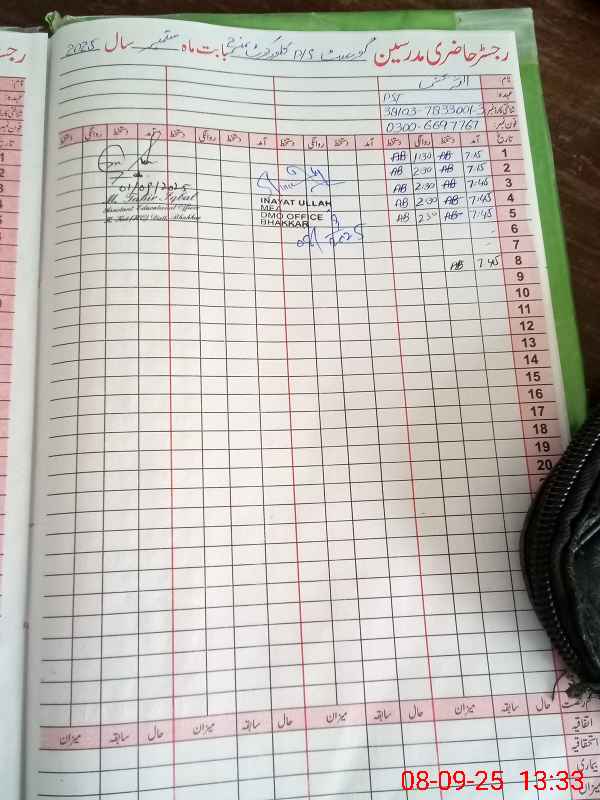 رجسٹر حاضری مدرسین گورنمنٹ P/S بابت ماہ ستمبر سال 2025
نام:
عہدہ: PST
شناختی کارڈ نمبر 38103-7833001-3
فون نمبر 0300-6697767
تاریخ آمد دستخط روانگی دستخط آمد دستخط روانگی دستخط آمد دستخط روانگی دستخط آمد دستخط روانگی دستخط
1 7:15 AB 1:30 AB
2 7:15 AB 2:00 AB
3 7:45 AB 2:30 AB
4 7:45 AB 2:00 AB
5 7:45 AB 2:30 AB
6
7
8 7:45 AB
9
10
11
12
13
14
15
16
17
18
19
20
01/09/2025
M. Tahir Iqbal
Assistant Education Officer
INAYAT ULLAH
MEA
DMO OFFICE
BHAKKAR
رخصت حال سابقہ میزان حال سابقہ میزان حال سابقہ میزان حال سابقہ میزان
اتفاقیہ
استحقاقیہ
بیماری
08-09-25 13:33